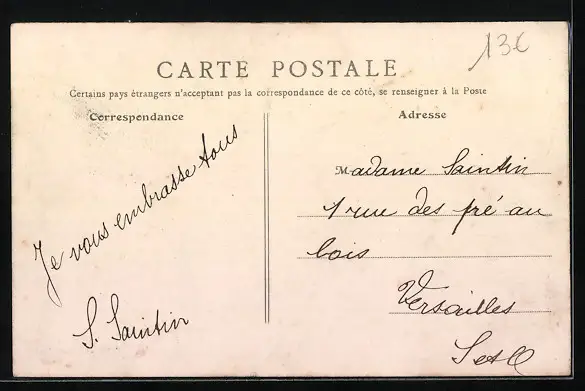 13€
CARTE POSTALE
Certains pays étrangers n'acceptant pas la correspondance de ce côté, se renseigner à la Poste
Correspondance
Adresse
Je vous embrasse tous
S. Saintin
Madame Saintin
1 rue des pré au
bois
Versailles
S et O